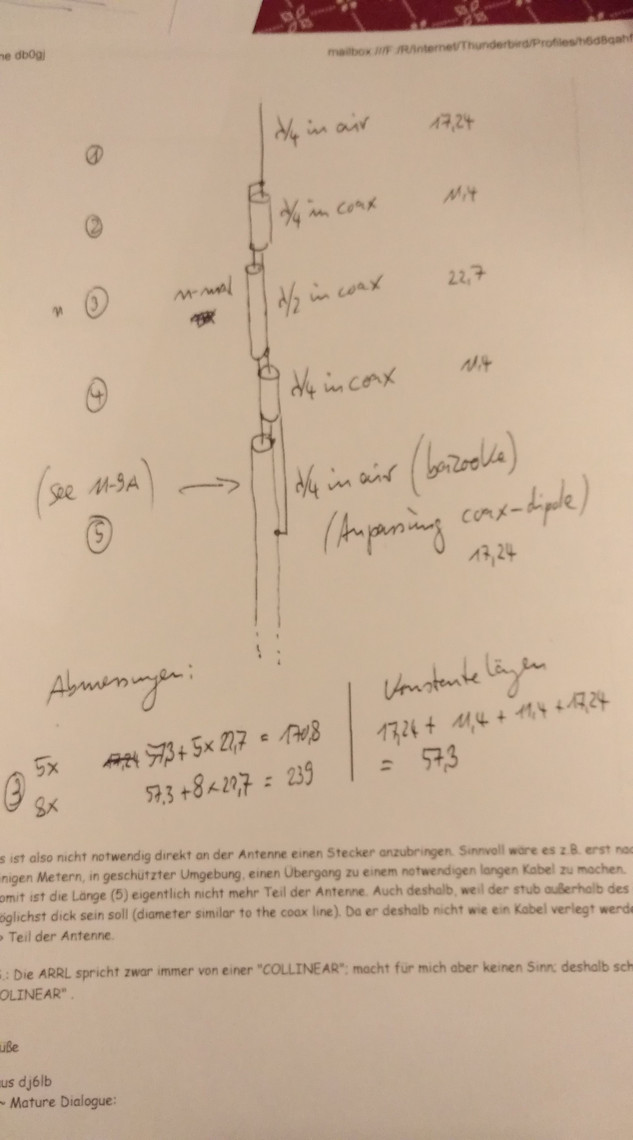 ne db0gj
mailbox:///F:/R/Internet/Thunderbird/Profiles/h6d8qahf
① λ/4 in air 17,24
② λ/4 in coax 11,4
n ③ n-mal λ/2 in coax 22,7
④ λ/4 in coax 11,4
(see 11-9A) → λ/4 in air (bazooka)
⑤ (Anpassung coax-dipole)
17,24
Abmessungen:
Konstante Längen
17,24 + 11,4 + 11,4 + 17,24
= 57,3
③ 5x 57,3 + 5 x 22,7 = 170,8
8x 57,3 + 8 x 22,7 = 239
s ist also nicht notwendig direkt an der Antenne einen Stecker anzubringen. Sinnvoll wäre es z.B. erst nac
inigen Metern, in geschützter Umgebung, einen Übergang zu einem notwendigen langen Kabel zu machen.
omit ist die Länge (5) eigentlich nicht mehr Teil der Antenne. Auch deshalb, weil der stub außerhalb des
öglichst dick sein soll (diameter similar to the coax line). Da er deshalb nicht wie ein Kabel verlegt werde
Teil der Antenne.
.: Die ARRL spricht zwar immer von einer "COLLINEAR"; macht für mich aber keinen Sinn; deshalb sch
OLINEAR" .
üße
us dj6lb
~ Mature Dialogue: